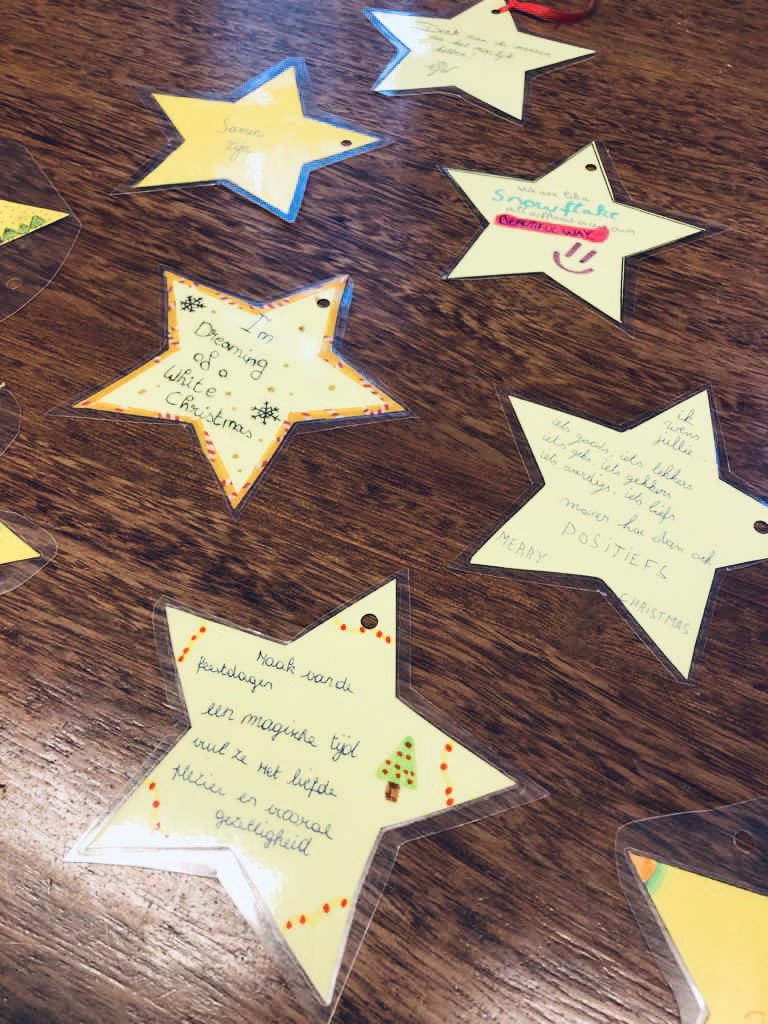 Denk aan de mensen
die het moeilijk
hebben
Samen
zijn
We are like
Snowflake
all different in our own
BEAUTIFUL WAY
I'm
Dreaming
of a
White
Christmas
ik
wens
jullie...
iets goeds, iets lekkers
iets geks, iets gekkers
iets aardigs, iets liefs
maar hoe dan ook
POSITIEFS
MERRY
CHRISTMAS
Maak van de
feestdagen
een magische tijd
vul ze met liefde
plezier en vooral
gezelligheid